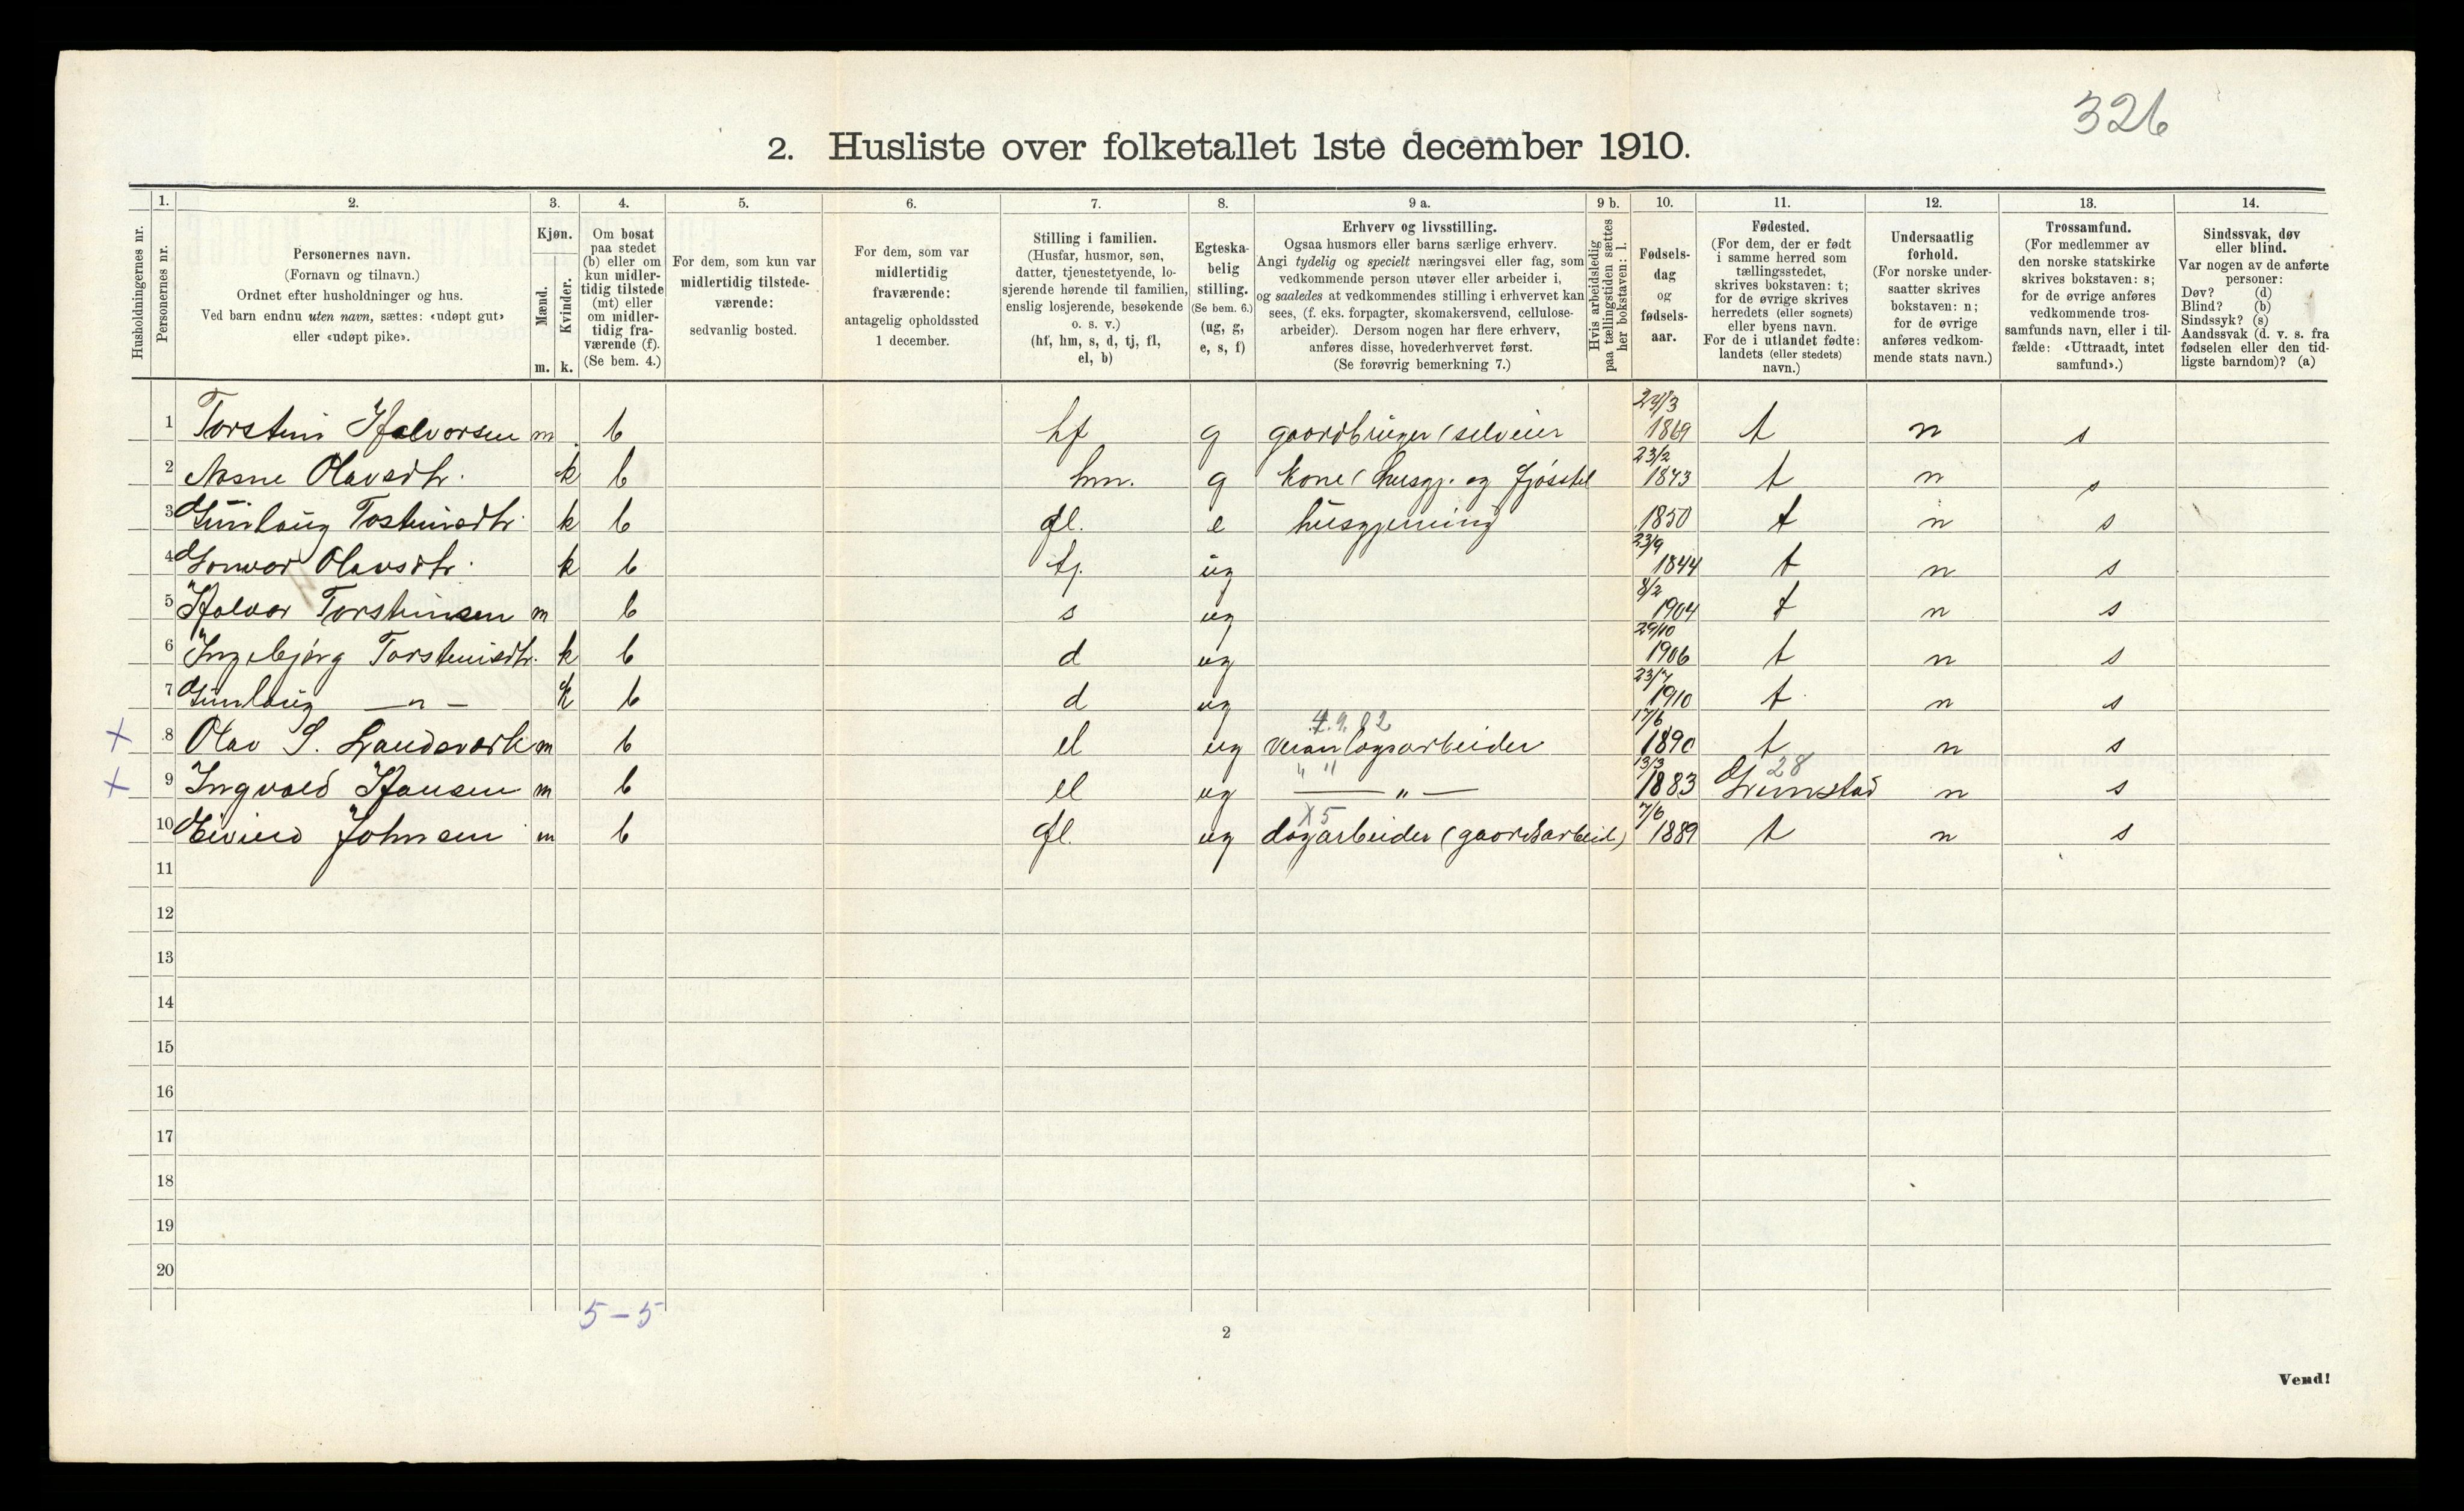 326
2. Husliste over folketallet 1ste december 1910.
Husholdningernes nr.
1.
Personernes nr.
2.
Personernes navn.
(Fornavn og tilnavn.)
Ordnet efter husholdninger og hus.
Ved barn endnu uten navn, sættes: «udøpt gut»
eller «udøpt pike».
3.
Kjøn.
Mænd.
Kvinder.
m. k.
4.
Om bosat
paa stedet
(b) eller om
kun midler-
tidig tilstede
(mt) eller
om midler-
tidig fra-
værende (f).
(Se bem. 4.)
5.
For dem, som kun var
midlertidig tilstede-
værende:
sedvanlig bosted.
6.
For dem, som var
midlertidig
fraværende:
antagelig opholdssted
1 december.
7.
Stilling i familien.
(Husfar, husmor, søn,
datter, tjenestetyende, lo-
sjerende hørende til familien,
enslig losjerende, besøkende
o. s. v.)
(hf, hm, s, d, tj, fl,
el, b)
8.
Egteska-
belig
stilling.
(Se bem. 6.)
(ug, g,
e, s, f)
9 a.
Erhverv og livsstilling.
Ogsaa husmors eller barns særlige erhverv.
Angi tydelig og specielt næringsvei eller fag, som
vedkommende person utøver eller arbeider i,
og saaledes at vedkommendes stilling i erhvervet kan
sees, (f. eks. forpagter, skomakersvend, cellulose-
arbeider). Dersom nogen har flere erhverv,
anføres disse, hovederhvervet først.
(Se forøvrig bemerkning 7.)
9 b.
Hvis arbeidsledig
paa tællingstiden sættes
her bokstaven: l.
10.
Fødsels-
dag
og
fødsels-
aar.
11.
Fødested.
(For dem, der er født
i samme herred som
tællingsstedet,
skrives bokstaven: t;
for de øvrige skrives
herredets (eller sognets)
eller byens navn.
For de i utlandet fødte:
landets (eller stedets)
navn.)
12.
Undersaatlig
forhold.
(For norske under-
saatter skrives
bokstaven: n;
for de øvrige
anføres vedkom-
mende stats navn.)
13.
Trossamfund.
(For medlemmer av
den norske statskirke
skrives bokstaven: s;
for de øvrige anføres
vedkommende tros-
samfunds navn, eller i til-
fælde: «Uttraadt, intet
samfund».)
14.
Sindssvak, døv
eller blind.
Var nogen av de anførte
personer:
Døv? (d)
Blind? (b)
Sindssyk? (s)
Aandssvak (d. v. s. fra
fødselen eller den tid-
ligste barndom)? (a)
1 Torstein Halvorsen m b hf g gaardbruger (selveier 24/3 1869 t n s
2 Aasne Olavsdtr. k b hm. g kone (husgj. og fjøsstel 23/2 1873 t n s
3 Gunlaug Tosteinsdtr. k b fl. e husgjerning 1850 t n s
4 Gonvor Olavsdtr. k b tj. ug 23/9 1844 t n s
5 Halvor Torsteinsen m b s ug 8/2 1904 t n s
6 Ingebjørg Torsteinsdtr. k b d ug 29/10 1906 t n s
7 Gunlaug — " — k b d ug 23/7 1910 t n s
4.9.82
x 8 Olav S. Landsverk m b el ug veianlagsarbeider 17/6 1890 t n s
" " 28
x 9 Ingvald Hansen m b el ug — " — 13/3 1883 Grimstad n s
x5
10 Eivind Johnsen m b fl. ug dagarbeider (gaardsarbeid) 7/6 1889 t n s
11
12
13
14
15
16
17
18
19
20
5 – 5
2
Vend!